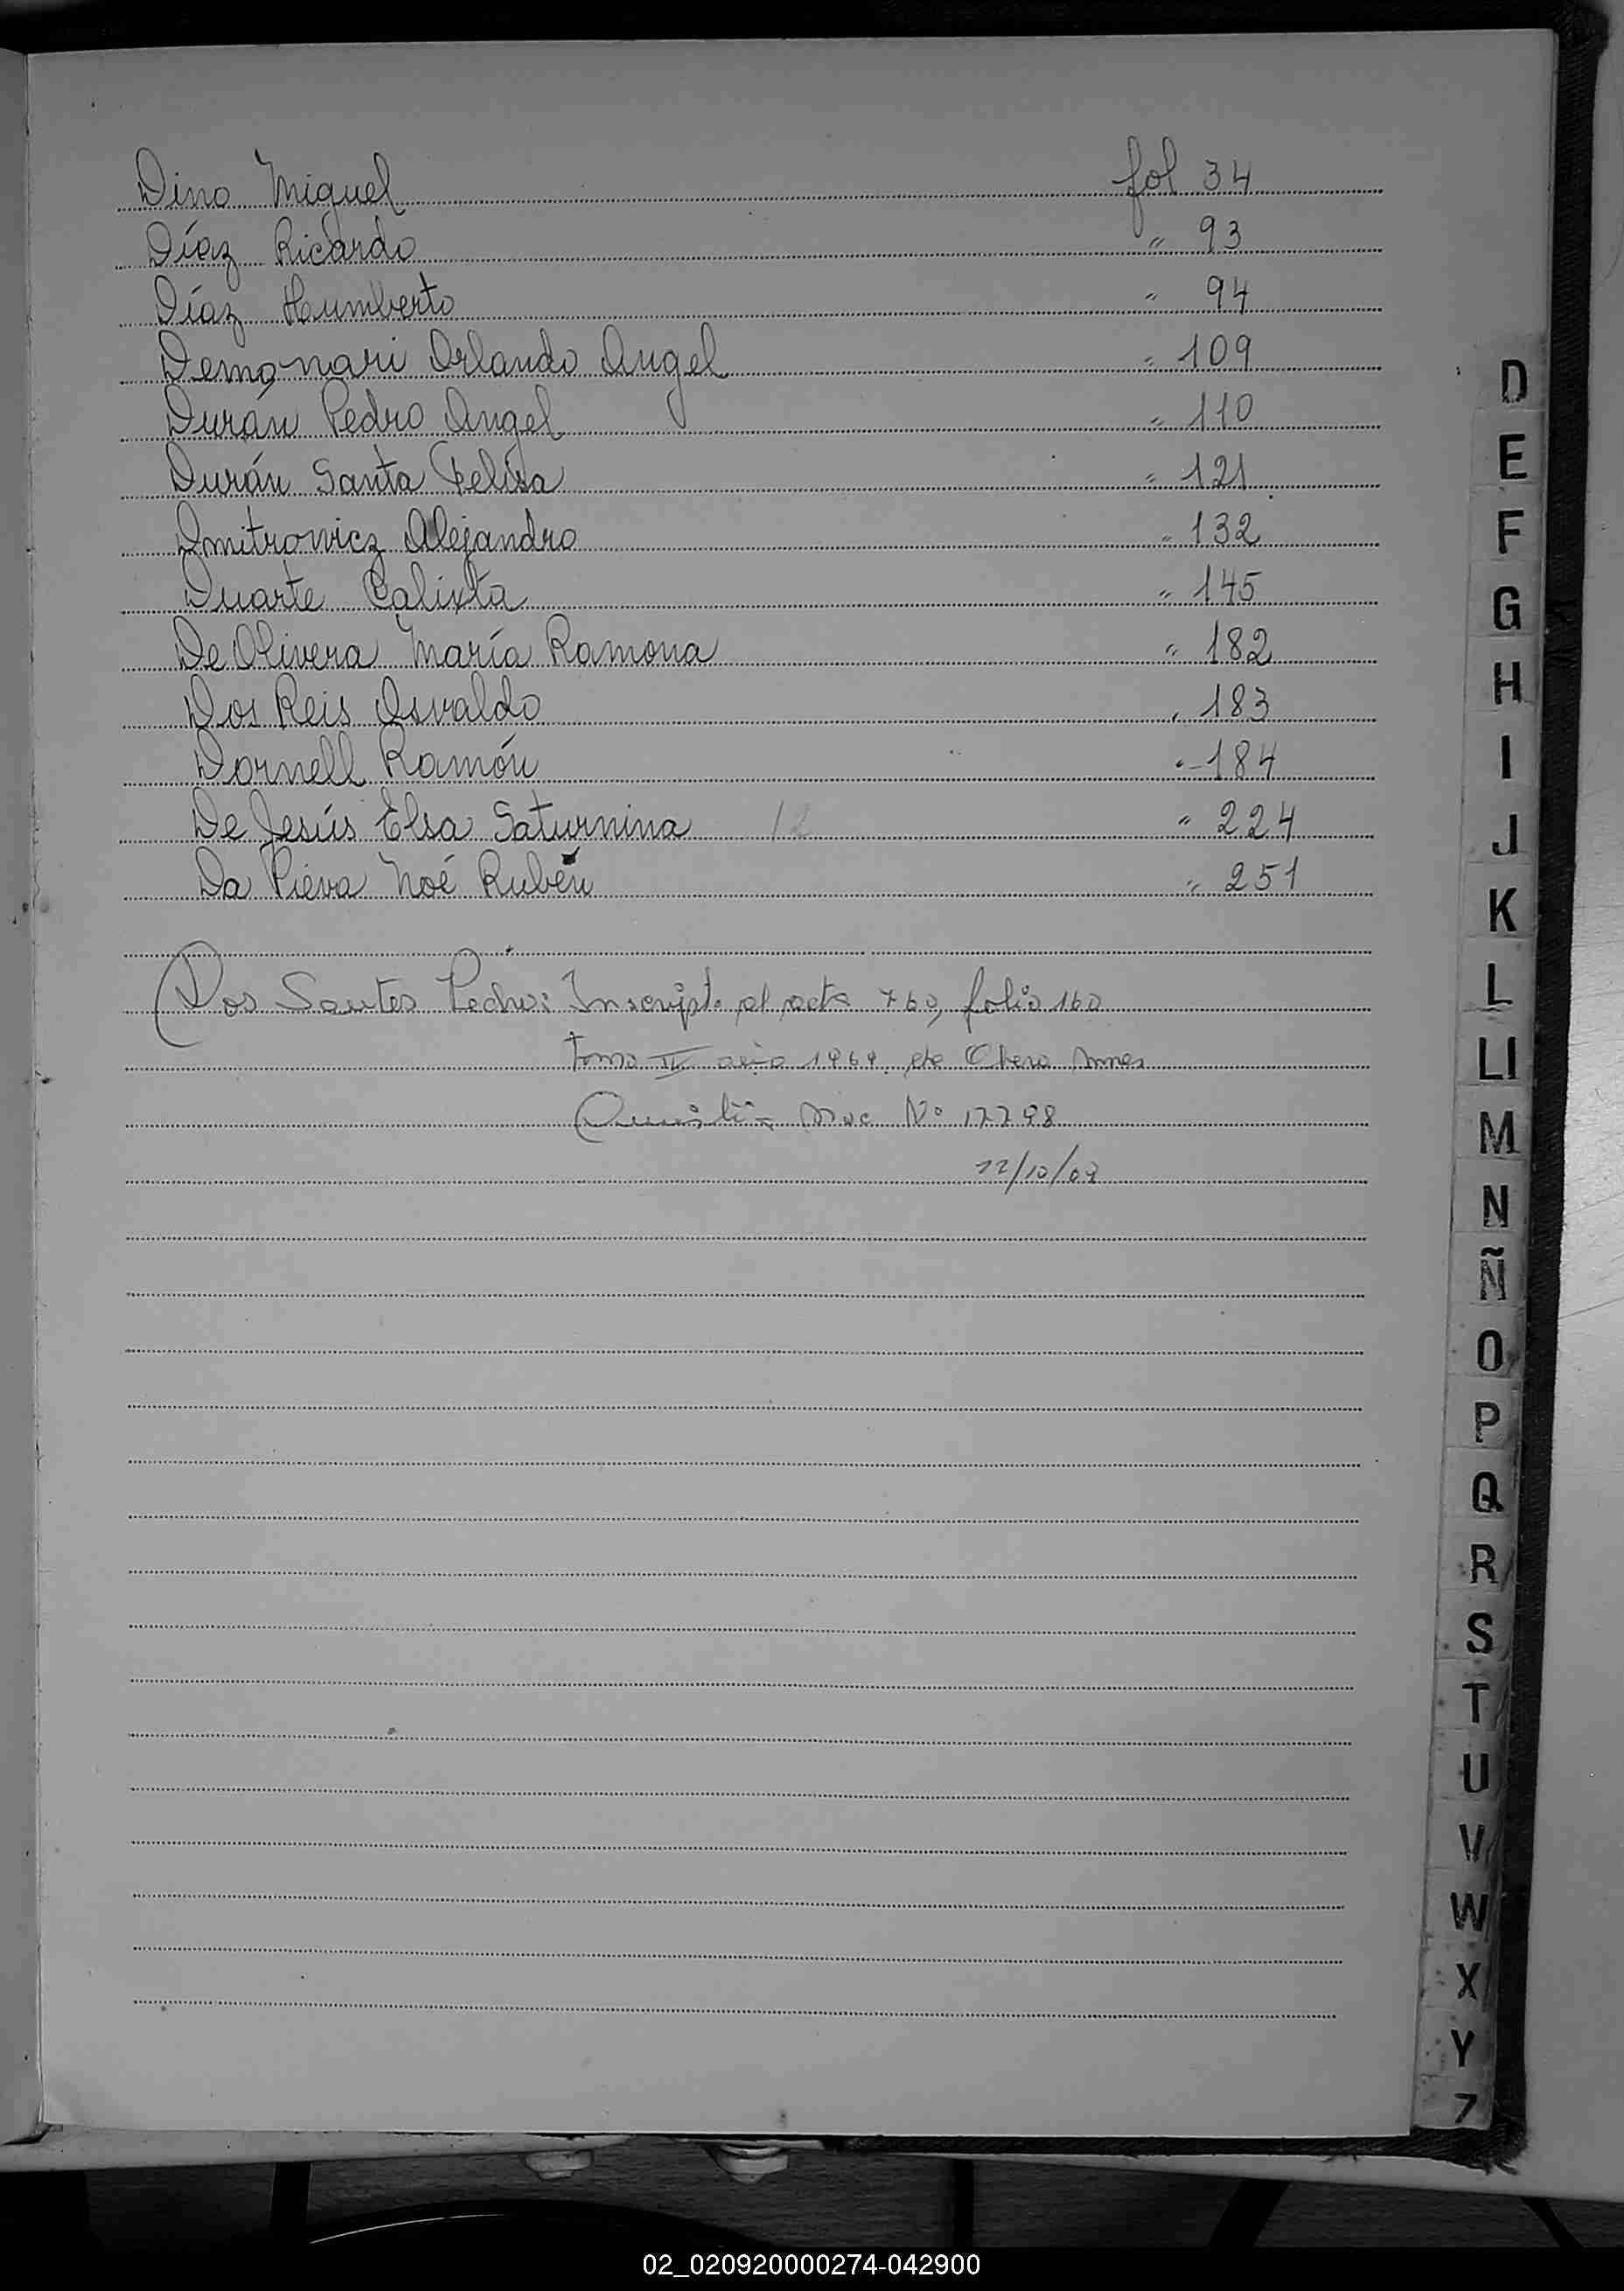 Dino Miguel fol 34
Díaz Ricardo " 93
Díaz Humberto " 94
Demonari Orlando Angel " 109
Durán Pedro Angel " 110
Durán Santa Felisa " 121
Dmitrowicz Alejandro " 132
Duarte Calixta " 145
De Olivera María Ramona " 182
Dos Reis Osvaldo " 183
Dornell Ramón " 184
De Jesús Elsa Saturnina 12 " 224
Da Pieva Noé Rubén " 251
Dos Santos Pedro: Inscripto al acta 760, folio 160
Tomo II año 1969 de Obera Mnes
Nº 17798
22/10/09
D
E
F
G
H
I
J
K
L
Ll
M
N
Ñ
O
P
Q
R
S
T
U
V
W
X
Y
Z
02_020920000274-042900